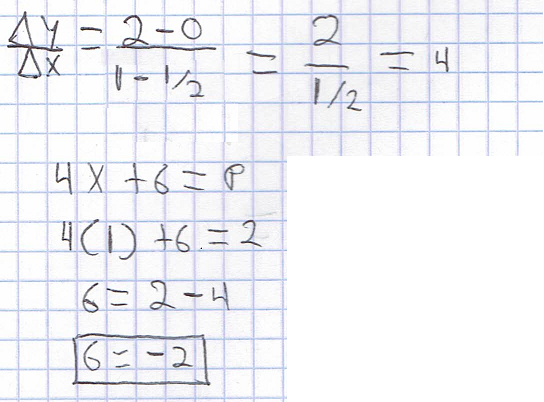 Δy/Δx = (2-0)/(1-1/2) = 2/(1/2) = 4
4x + b = P
4(1) + b = 2
b = 2 - 4
b = -2